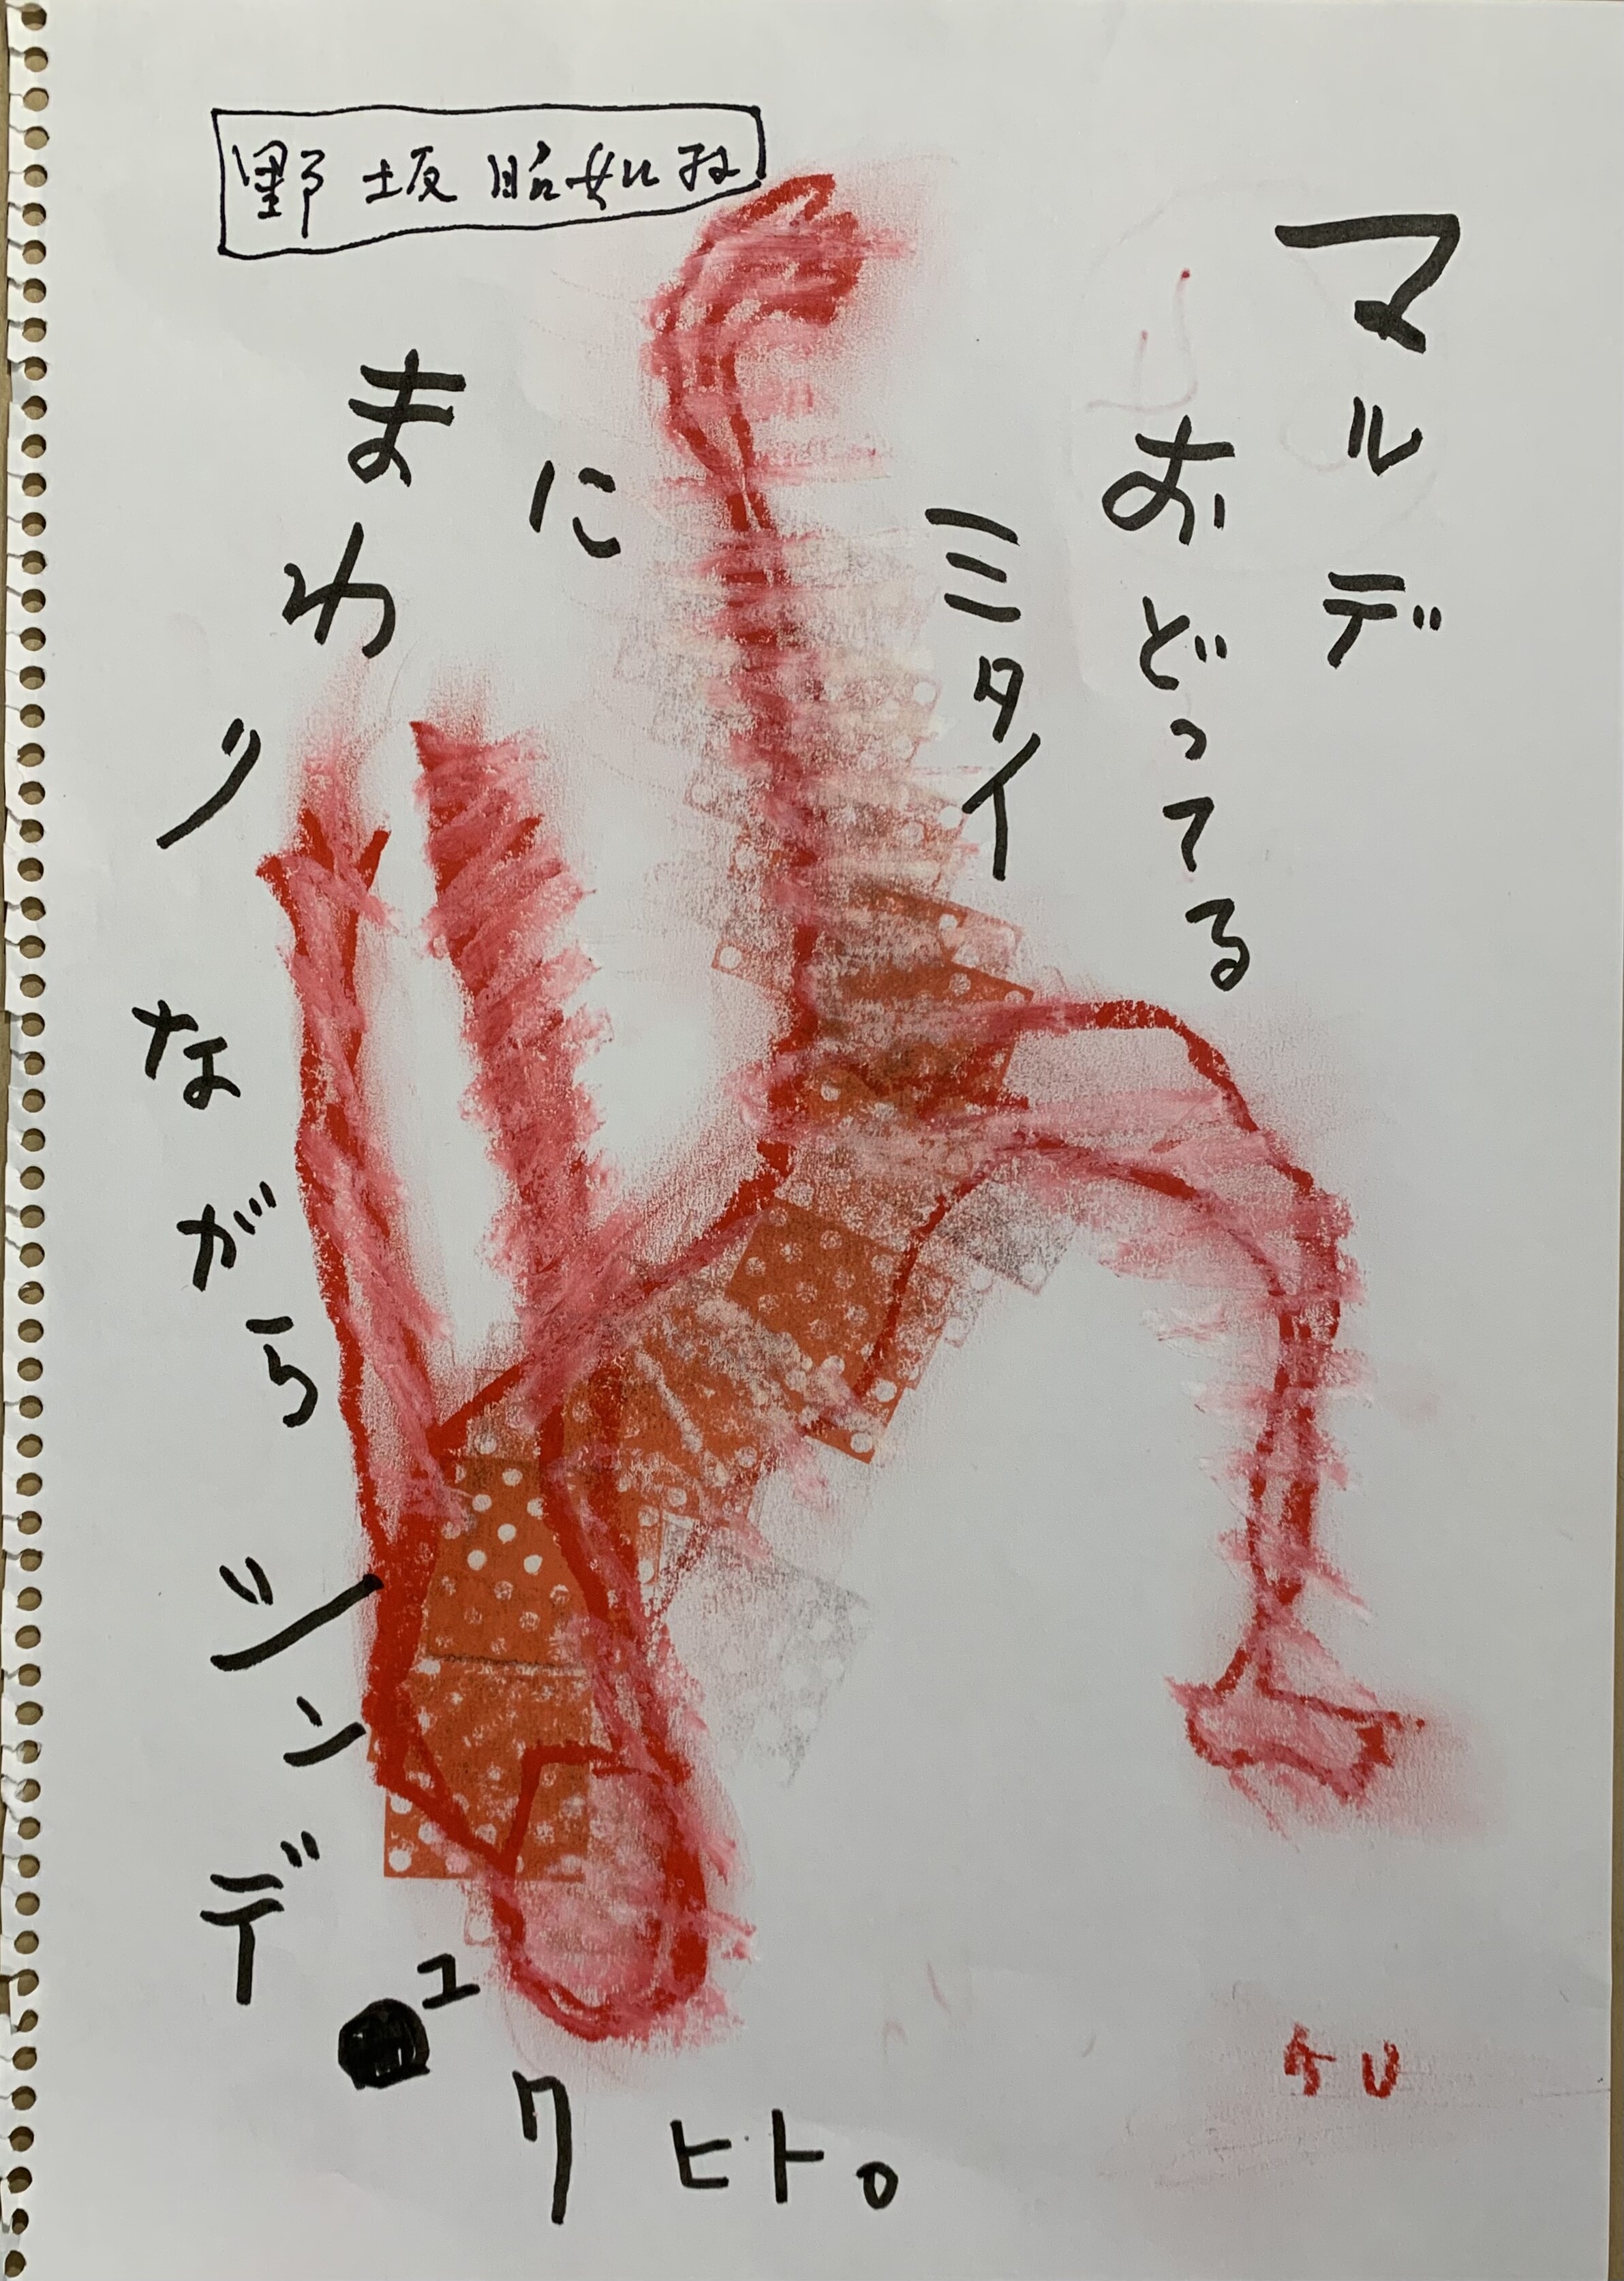 野坂昭如
マルデ
おどってる
ミタイ
に
まわりながら
シンデ
ユクヒト。